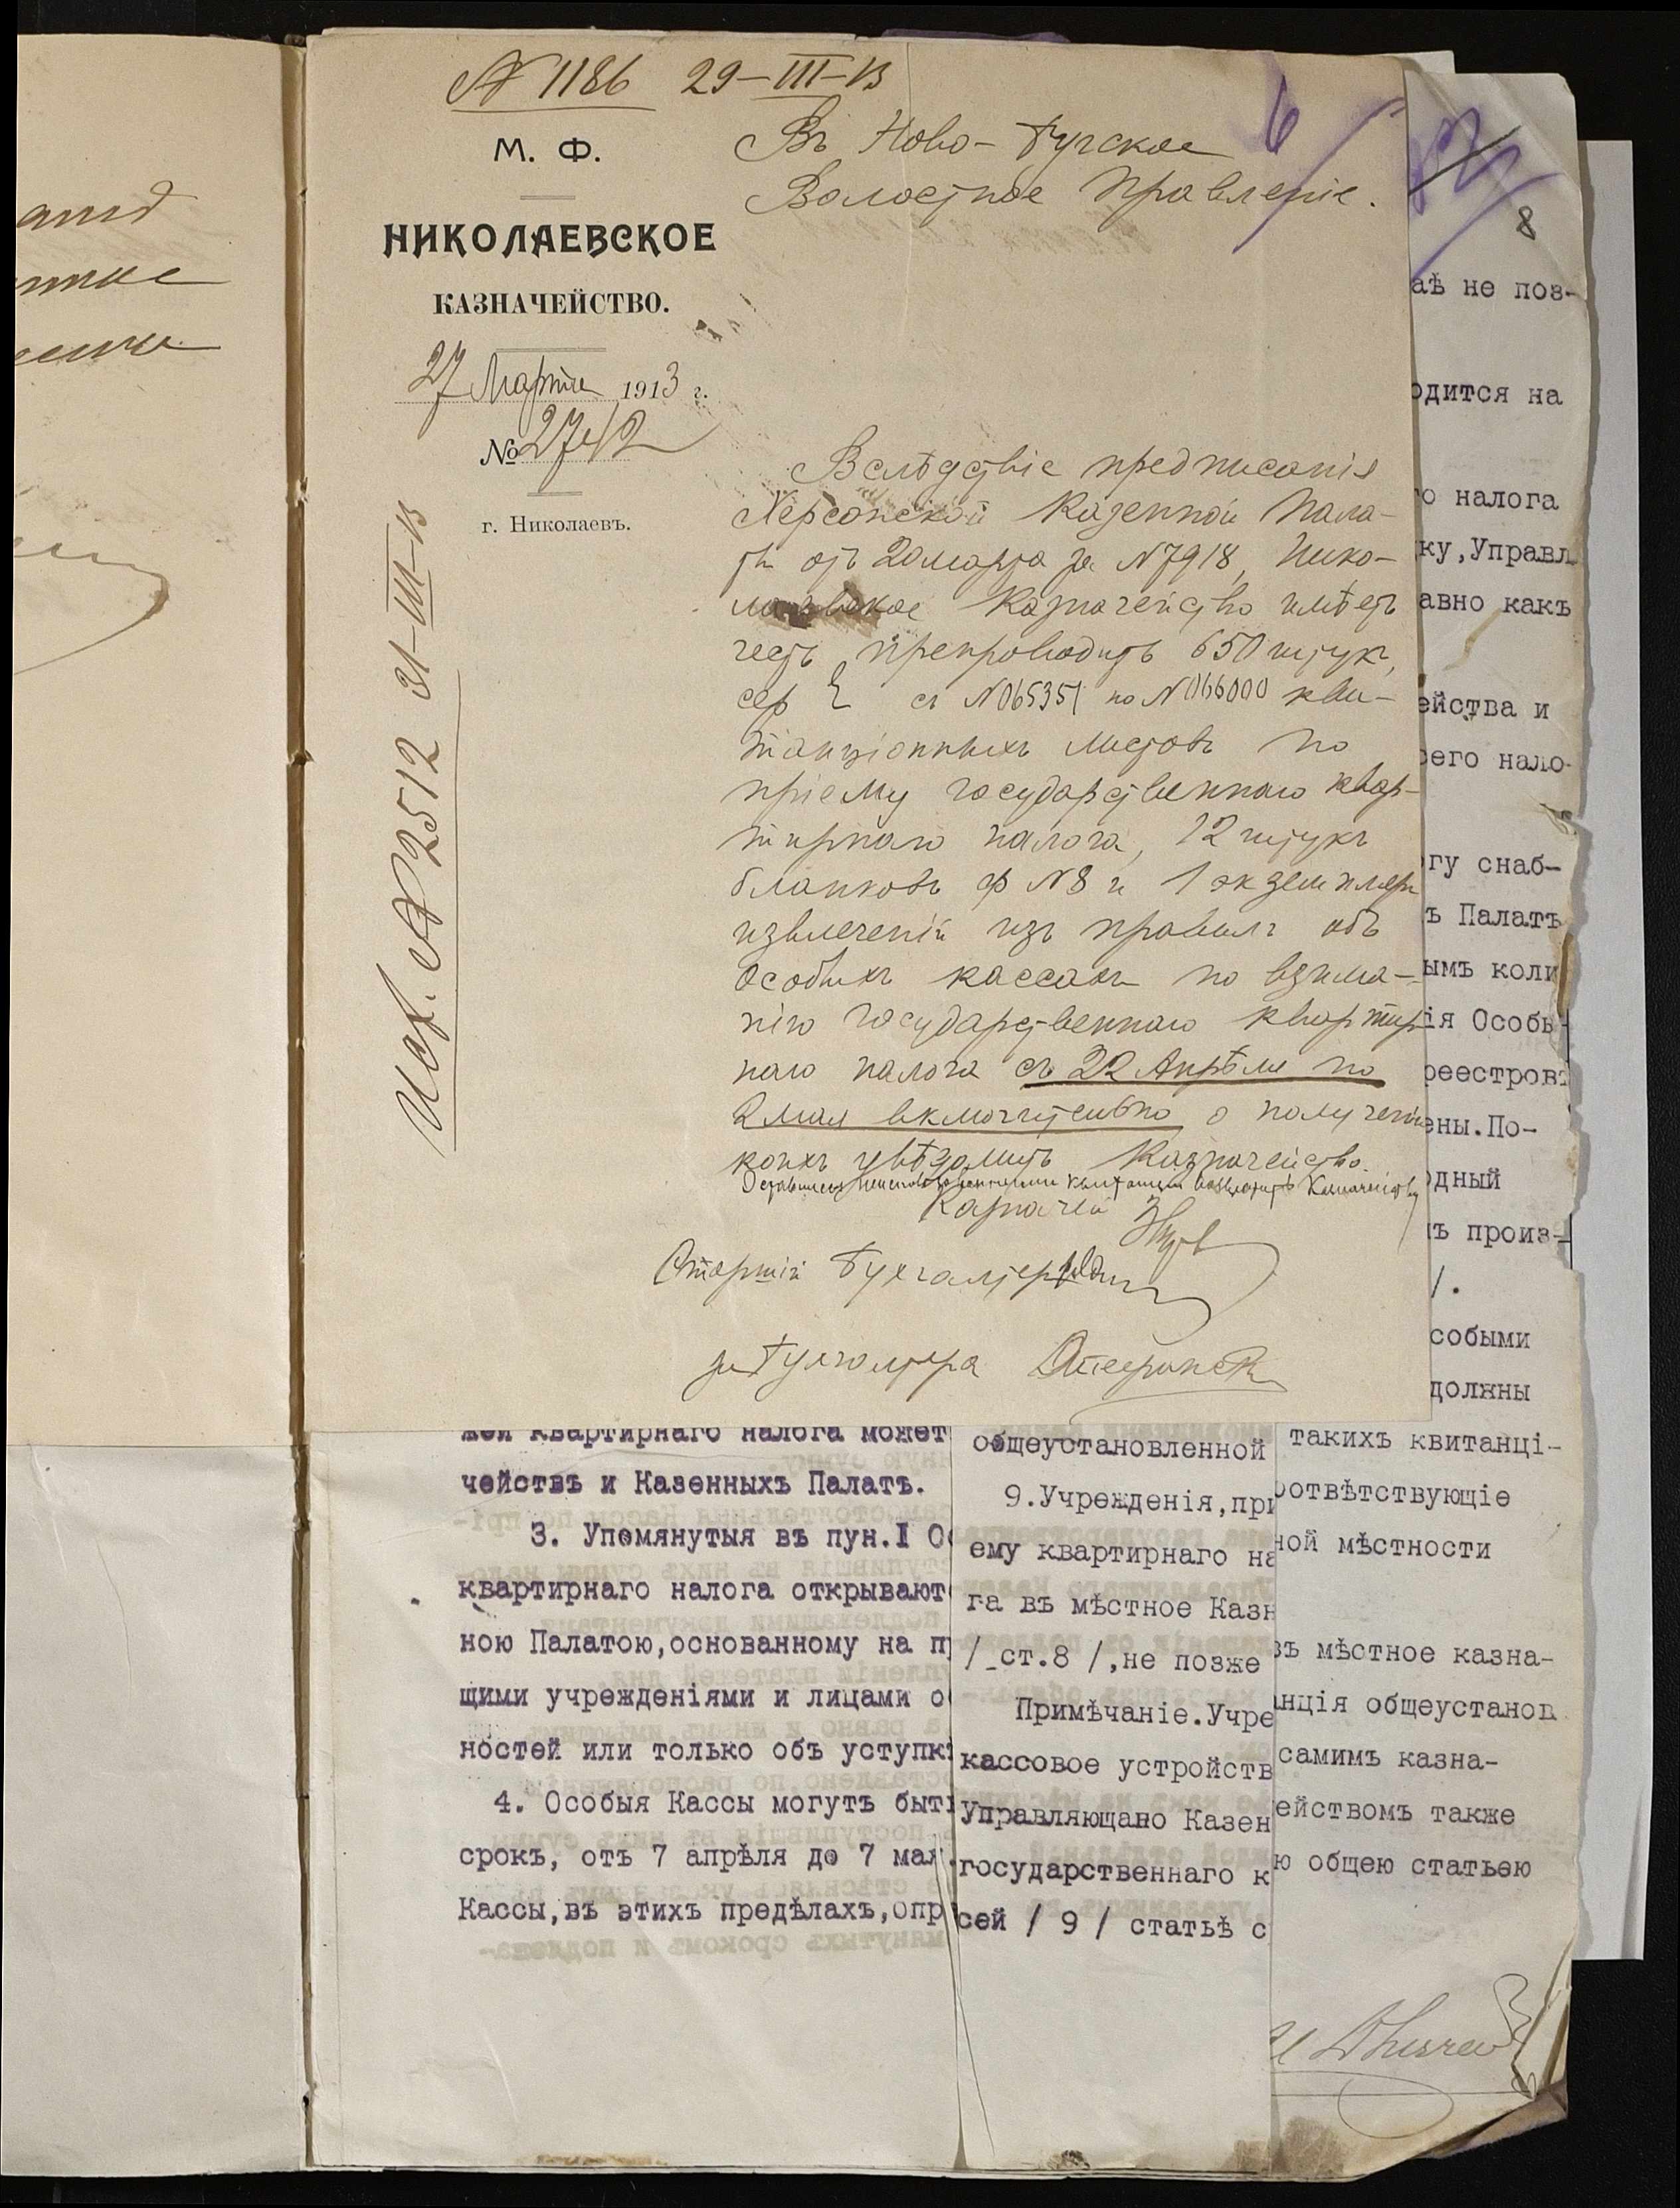 № 1186 29-III-13
М. Ф.
НИКОЛАЕВСКОЕ
КАЗНАЧЕЙСТВО.
27 Марта 1913 г.
№ 2742
г. Николаевъ.
Исх. № 2512 31-III-13
Въ Ново-Бугское
Волостное Правленіе.
6
8
Вслѣдствіе предписанія
Херсонской Казенной Пала-
ты отъ 20 марта за №7918, Нико-
лаевское Казначейство имѣетъ
честь препроводить 650 штукъ,
сер с №065351 по №066000 кви-
танціонныхъ листовъ по
пріему государственнаго квар-
тирнаго налога, 12 штукъ
бланковъ ф №8 и 1 экземпляръ
извлеченій изъ правилъ объ
Особыхъ кассахъ по взима-
нію государственнаго квартир
наго налога съ 22 Апрѣля по
2 мая включительно о полученіи
коихъ увѣдомить Казначейство.
Оставшіеся квитанціи возвратить Казначейству
Казначей
Старшій Бухгалтеръ
за Бухгалтера
аѣ не поз-
одится на
го налога
ку,Управл
авно какъ
ейства и
сего нало-
огу снаб-
ъ Палатъ
ымъ коли
ія Особы
реестровъ
ены.По-
одный
ъ произ-
/.
собыми
должны
такихъ квитанці-
оотвѣтствующіе
ной мѣстности
въ мѣстное казна-
нція общеустанов
самимъ казна-
ействомъ также
ю общею статьею
шей квартирнаго налога может
чействъ и Казенныхъ Палатъ.
3. Упомянутыя въ пун.I О
квартирнаго налога открывают
ною Палатою,основанному на п
щими учрежденіями и лицами о
ностей или только объ уступк
4. Особыя Кассы могутъ быт
срокъ, отъ 7 апрѣля до 7 мая
Кассы,въ этихъ предѣлахъ,опр
общеустановленной
9.Учрежденія,при
ему квартирнаго на
га въ мѣстное Казн
/ ст.8 /,не позже
Примѣчаніе.Учре
кассовое устройств
Управляющано Казен
государственнаго к
сей / 9 / статьѣ с